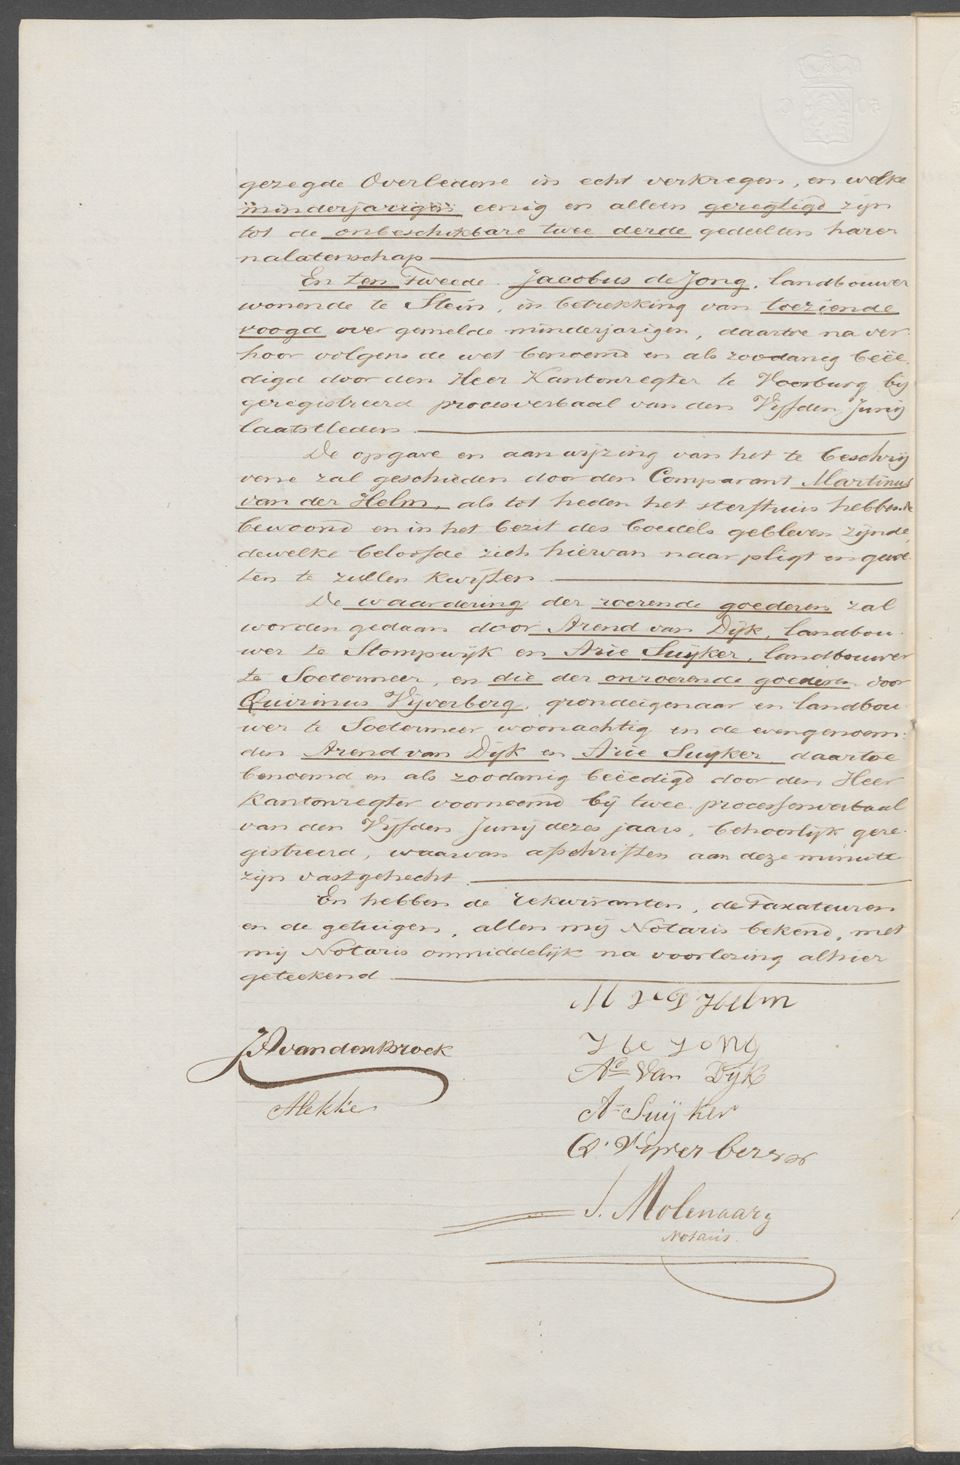 gezegde Overledene in echt verkregen, en welke
minderjarigen eenig en alleen geregtigd zijn
tot de onbeschikbare twee derde gedeelten harer
nalatenschap
En ten Tweede Jacobus de Jong, landbouwer
wonende te Stein, in betrekking van toeziende
voogd over gemelde minderjarigen, daartoe na ver
hoor volgens de wet benoemd en als zoodanig beëe
digd door den Heer Kantonregter te Voorburg bij
geregistreerd procesverbaal van den Vijfden Junij
laatstleden
De opgave en aanwijzing van het te beschrij
vene zal geschieden door den Comparant Martinus
van der Helm als tot heden het sterfhuis hebbende
bewoond en in het bezit des boedels gebleven zijnde,
dewelke beloofde zich hiervan naar pligt en gewe
ten te zullen kwijten
De waardering der roerende goederen zal
worden gedaan door Arend van Dijk, landbou
wer te Stompwijk en Arie Suijker, landbouwer
te Soetermeer, en die der onroerende goederen door
Quirinus Vijverberg, grondeigenaar en landbou
wer te Soetermeer woonachtig en de evengenoem:
den Arend van Dijk en Arie Suijker daartoe
benoemd en als zoodanig beëedigd door den Heer
Kantonregter voornoemd bij twee processenverbaal
van den Vijfden Junij dezes jaars, behoorlijk gere
gistreerd, waarvan afschriften aan deze minute
zijn vastgehecht
En hebben de rekwiranten, de Taxateuren
en de getuigen, allen mij Notaris bekend, met
mij Notaris onmiddelijk na voorlezing alhier
geteekend
M v d Helm
JP van den Broek
J de Jong
Ad Van Dijk
AHekke
A Suijker
Q. Vijverberg
J. Molenaar
Notaris.